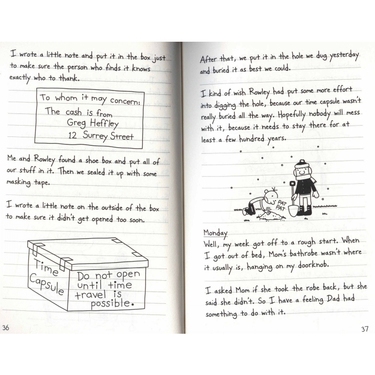 I wrote a little note and put it in the box just
to make sure the person who finds it knows
exactly who to thank.
To whom it may concern:
The cash is from
Greg Heffley
12 Surrey Street
Me and Rowley found a shoe box and put all of
our stuff in it. Then we sealed it up with some
masking tape.
I wrote a little note on the outside of the box
to make sure it didn't get opened too soon.
Time
Capsule
Do not open
until time
travel is
possible.
36
After that, we put it in the hole we dug yesterday
and buried it as best we could.
I kind of wish Rowley had put some more effort
into digging the hole, because our time capsule wasn't
really buried all the way. Hopefully nobody will mess
with it, because it needs to stay there for at
least a few hundred years.
PAT
PAT
Monday
Well, my week got off to a rough start. When
I got out of bed, Mom's bathrobe wasn't where
it usually is, hanging on my doorknob.
I asked Mom if she took the robe back, but she
said she didn't. So I have a feeling Dad had
something to do with it.
37